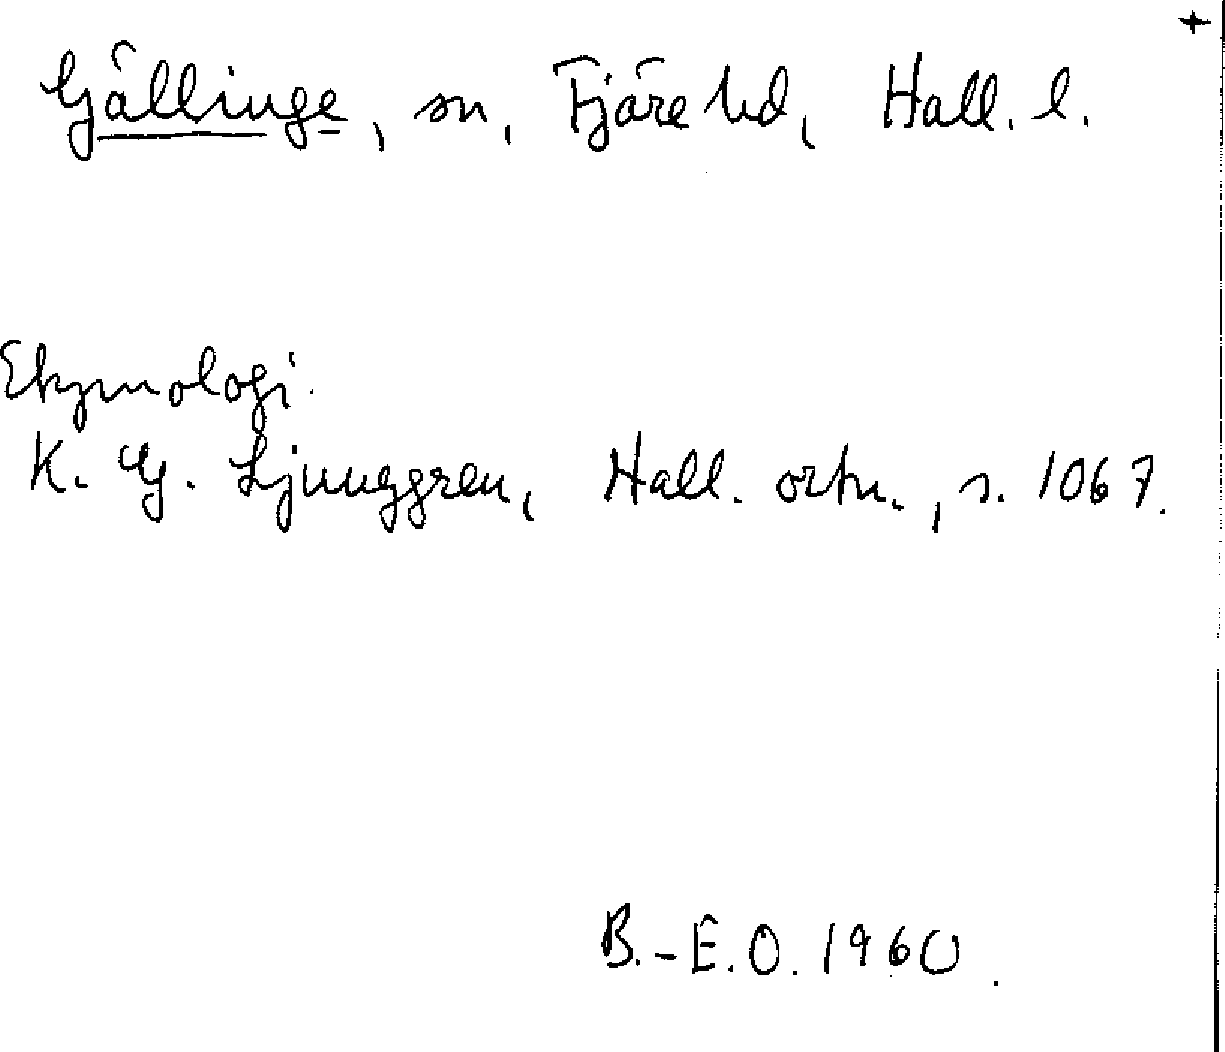 +
Gällinge, sn, Fjäre hd, Hall. l.
Etymologi.
K. G. Ljunggren, Hall. ortn., s. 1067.
B.-E.O. 1960.